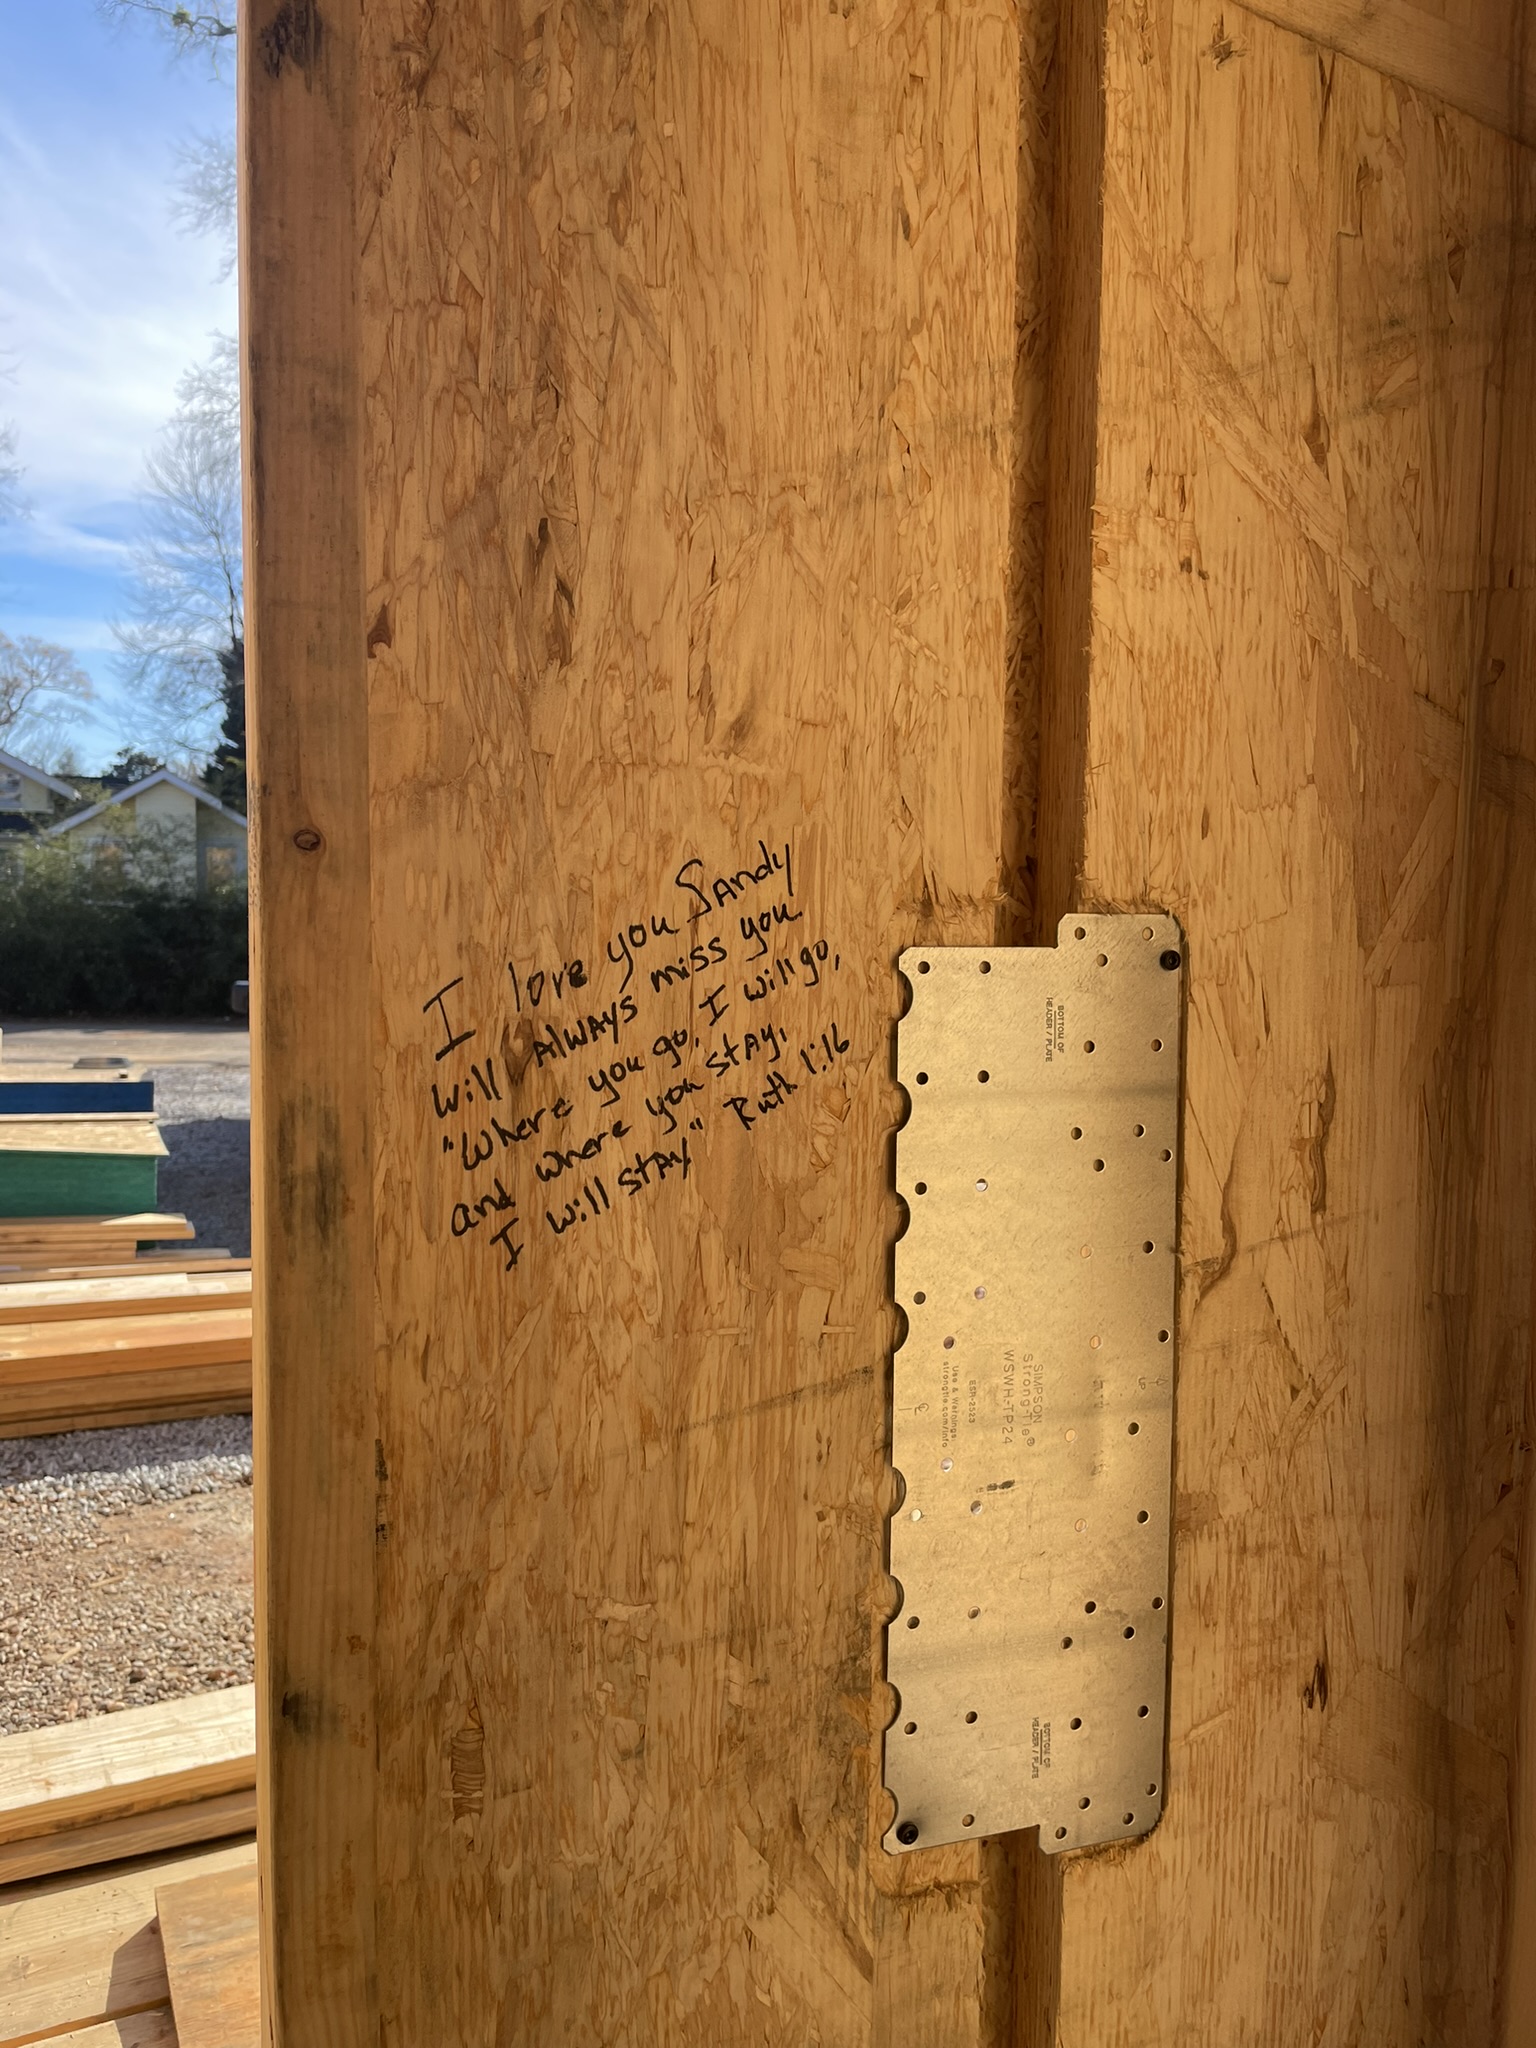 I love you Sandy
will Always miss you
"Where you go, I will go,
and where you stay,
I will stay" Ruth 1:16
BOTTOM OF
HEADER / PLATE
SIMPSON
Strong-Tie®
WSWH-TP24
ESR-2523
Use & Warnings:
strongtie.com/info
UP
BOTTOM OF
HEADER / PLATE